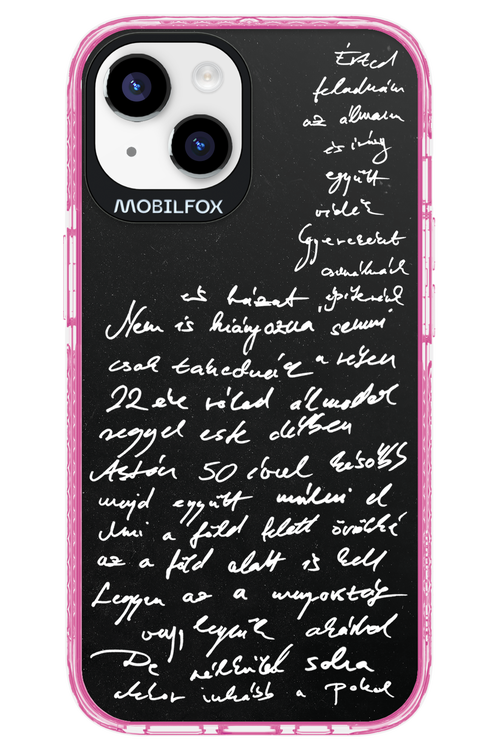 MOBILFOX
Érted
feladnám
az álmaim
és így
együtt
veled
Gyerekeket
csinálnánk
és házat építenénk
Nem is hiányozna semmi
csak takednéz a végen
22 éve rólad álmodok
reggel este délben
Aztán 50 évvel később
majd együtt múlni el
Ami a föld felett örökké
az a föld alatt is kell
Legyen az a mennyország
vagy legyünk akárhol
De nélküled soha
akkor inkább a pokol